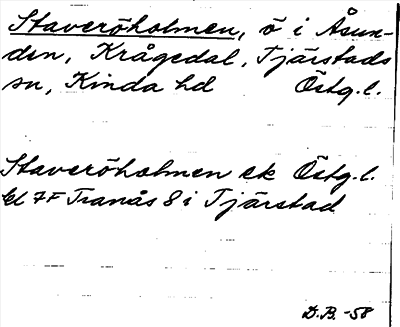 Staveröholmen, ö i Åsun-
den, Krågedal, Tjärstads
sn, Kinda hd Östg.l.
Staveröholmen ek Östg.l.
bl 7F Tranås 8 i Tjärstad
D.B. -58